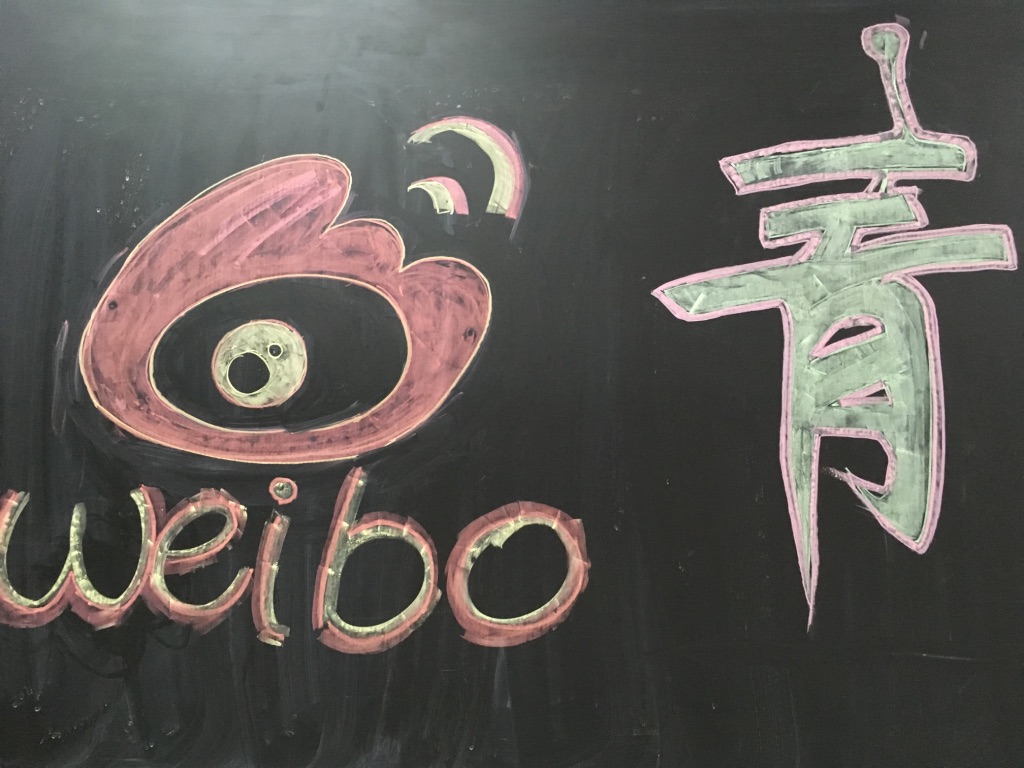 weibo
青